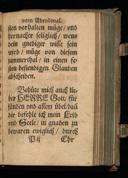 vom Abendmal.
sten vorhalten müge / und
hernacher seliglich / wenn
dein gnediger wille sein
wird / müge von diesem
jammerthal / in einen fe-
sten bestendigen Glauben
abscheiden.
Behüte mich auch lie-
ber HERRE Gott / für
sünden und allem übel daß
die befehle ich mein Leib
und Seele / in gnaden zu
bewaren ewiglich / durch
P ij Chr